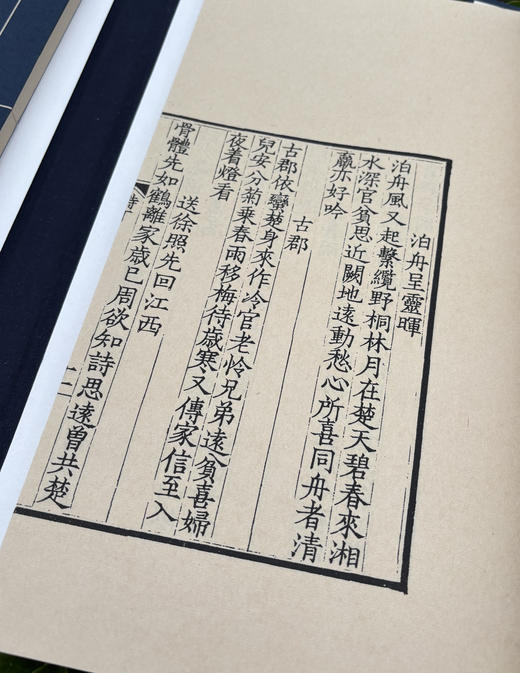 泊舟呈靈暉
泊舟風又起繫纜野桐林月在楚天碧春來湘
水深官貧思近闕地遠動愁心所喜同舟者清
羸亦好吟
古郡
古郡依蠻楚身來作冷官老怜兄弟遠貧喜婦
兒安分菊乗春雨移梅待歲寒又傳家信至入
夜着燈看
送徐照先回江西
骨體先如鶴離家歳已周欲知詩思遠曾共楚